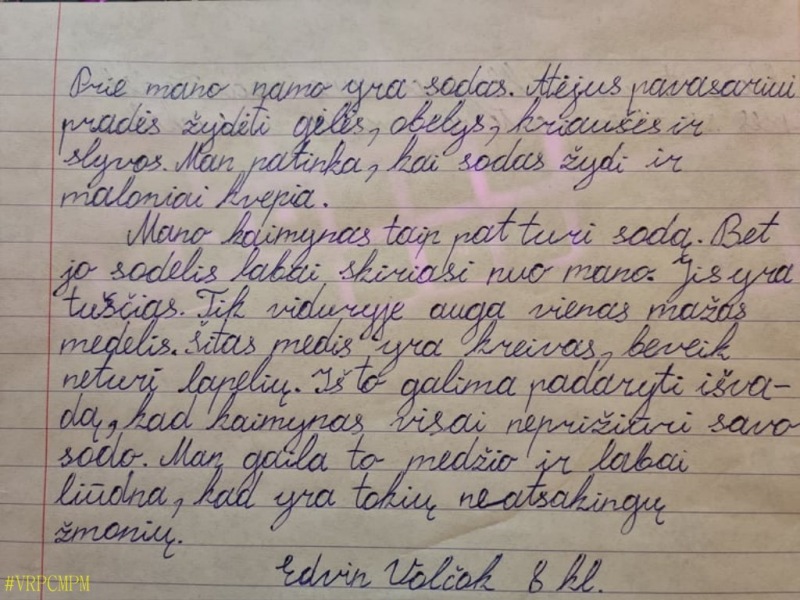 Prie mano namo yra sodas. Atėjus pavasariui
pradės žydėti gėlės, obelys, kriaušės ir
slyvos. Man patinka, kai sodas žydi ir
maloniai kvepia.
Mano kaimynas taip pat turi sodą. Bet
jo sodelis labai skiriasi nuo mano. Jis yra
tuščias. Tik viduryje auga vienas mažas
medelis. Šitas medis yra kreivas, beveik
neturi lapelių. Iš to galima padaryti išva-
dą, kad kaimynas visai neprižiūri savo
sodo. Man gaila to medžio ir labai
liūdna, kad yra tokių neatsakingų
žmonių.
Edvin Volčok 8 kl.
#VRPCMPM